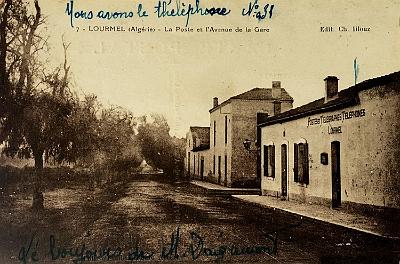 Nous avons le théléphone N° 31
7 - LOURMEL (Algérie) - La Poste et l'Avenue de la Gare
Edit. Ch. Idoux
POSTES TELEGRAPHES TELEPHONES
LOURMEL
de M.